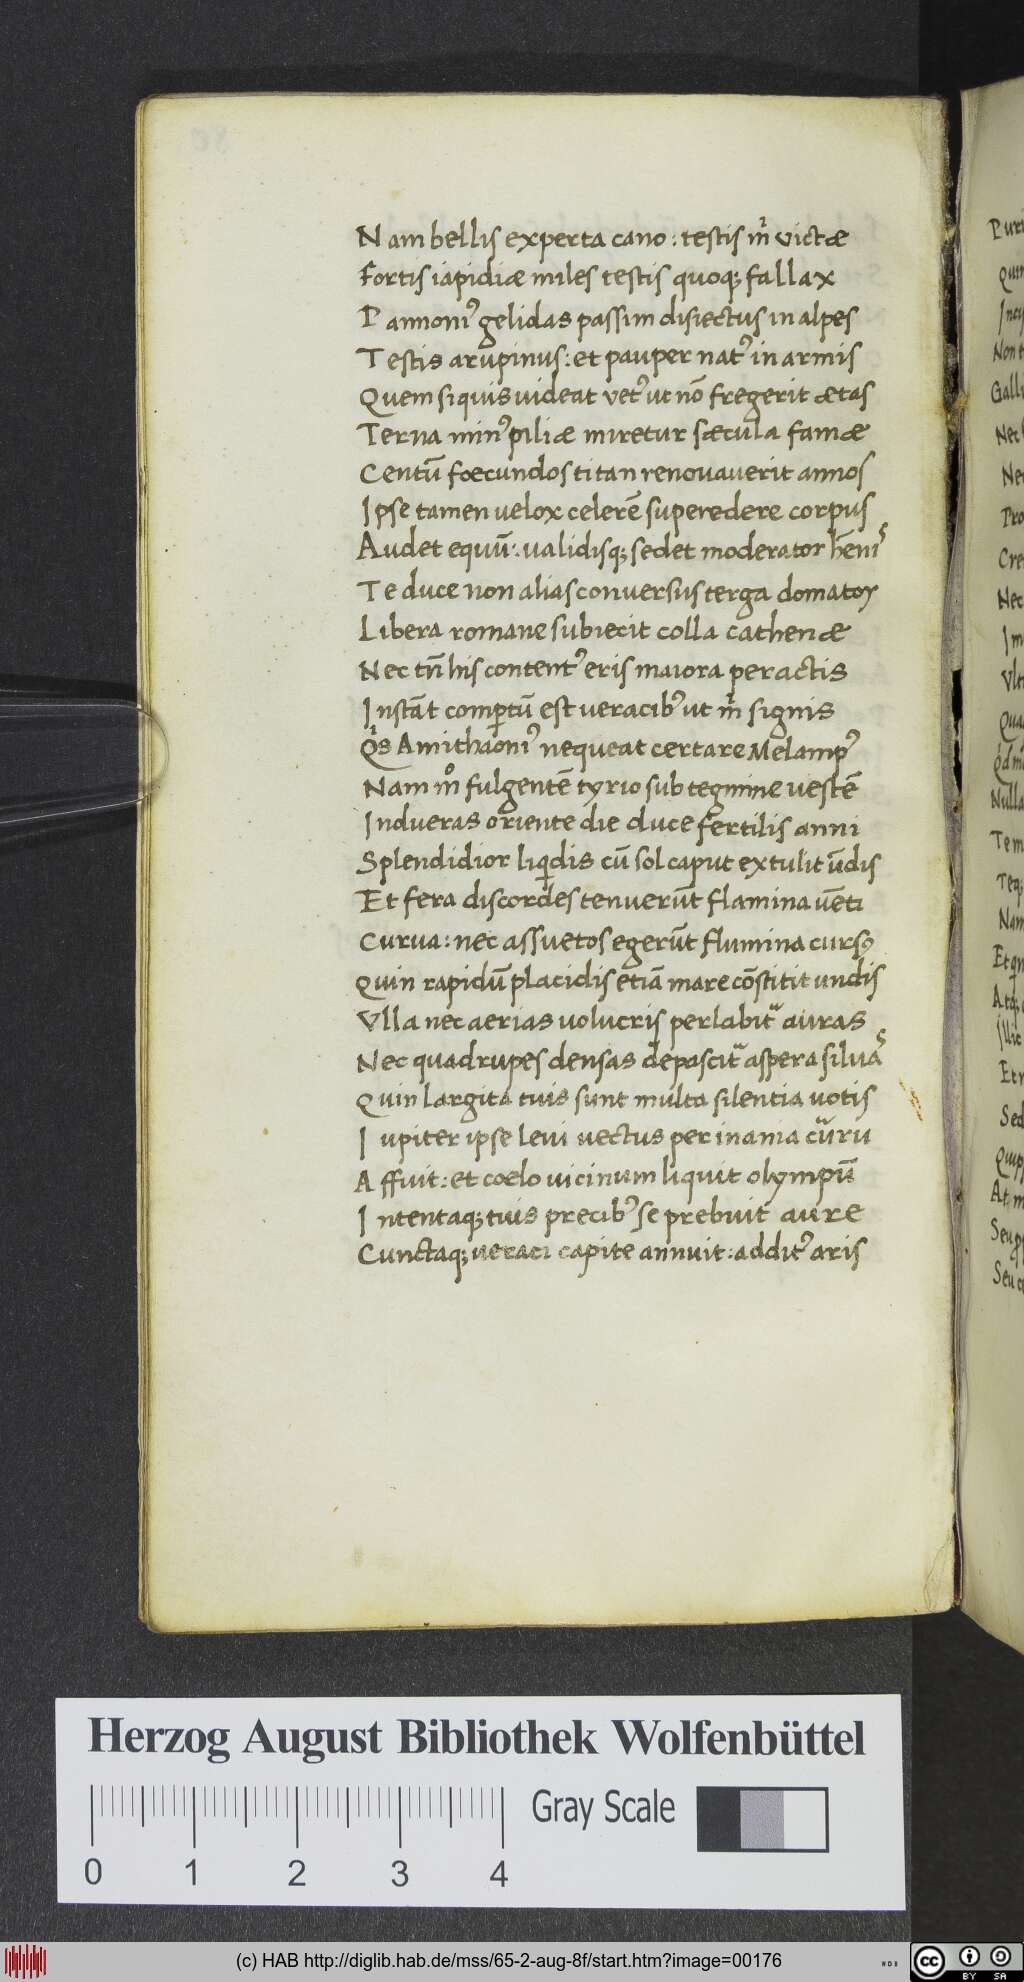 Nam bellis experta cano: testis m̄ victæ
Fortis iapidiæ miles testis quoq; fallax
Pannoni᾽ gelidas passim disiectus in alpes
Testis arupinus: et pauper nat᾽ in armis
Quem siquis uideat vet᾽ ut nō fregerit ætas
Terna min᾽ piliæ miretur sæcula famæ
Centū foecundos titan renouauerit annos
Ipse tamen uelox celerē super edere corpus
Audet equū: validisq; sedet moderator hēni᾽
Te duce non alias conuersus terga domator
Libera romane subiecit colla cathenæ
Nec tn̄ his content᾽ eris maiora peractis
Instāt compertū est veracib᾽ ut m̄ signis
Qs Amithaoni᾽ nequeat certare Melamp᾽
Nam mº fulgentē tyrio subtegmine vestē
Indueras oriente die duce fertilis anni
Splendidior liqidis cū sol caput extulit ūdis
Et fera discordes tenuerūt flamina uēti
Curva: nec assuetos egerūt flumina curs᾽
Quin rapidū placidis etiā mare cōstitit undis
Vlla nec aerias uolucris perlabit᾽ auras
Nec quadrupes densas depascit᾽ aspera siluas
Quin largita tuis sunt multa silentia uotis
Iupiter ipse leui uectus per inania curru
Affuit: et coelo uicinum liquit olympū
Intentaq; tuis precib᾽ se prebuit aure
Cunctaq; ueraci capite annuit: addit᾽ aris
Herzog August Bibliothek Wolfenbüttel
Gray Scale
0 1 2 3 4
(c) HAB http://diglib.hab.de/mss/65-2-aug-8f/start.htm?image=00176
cc BY SA